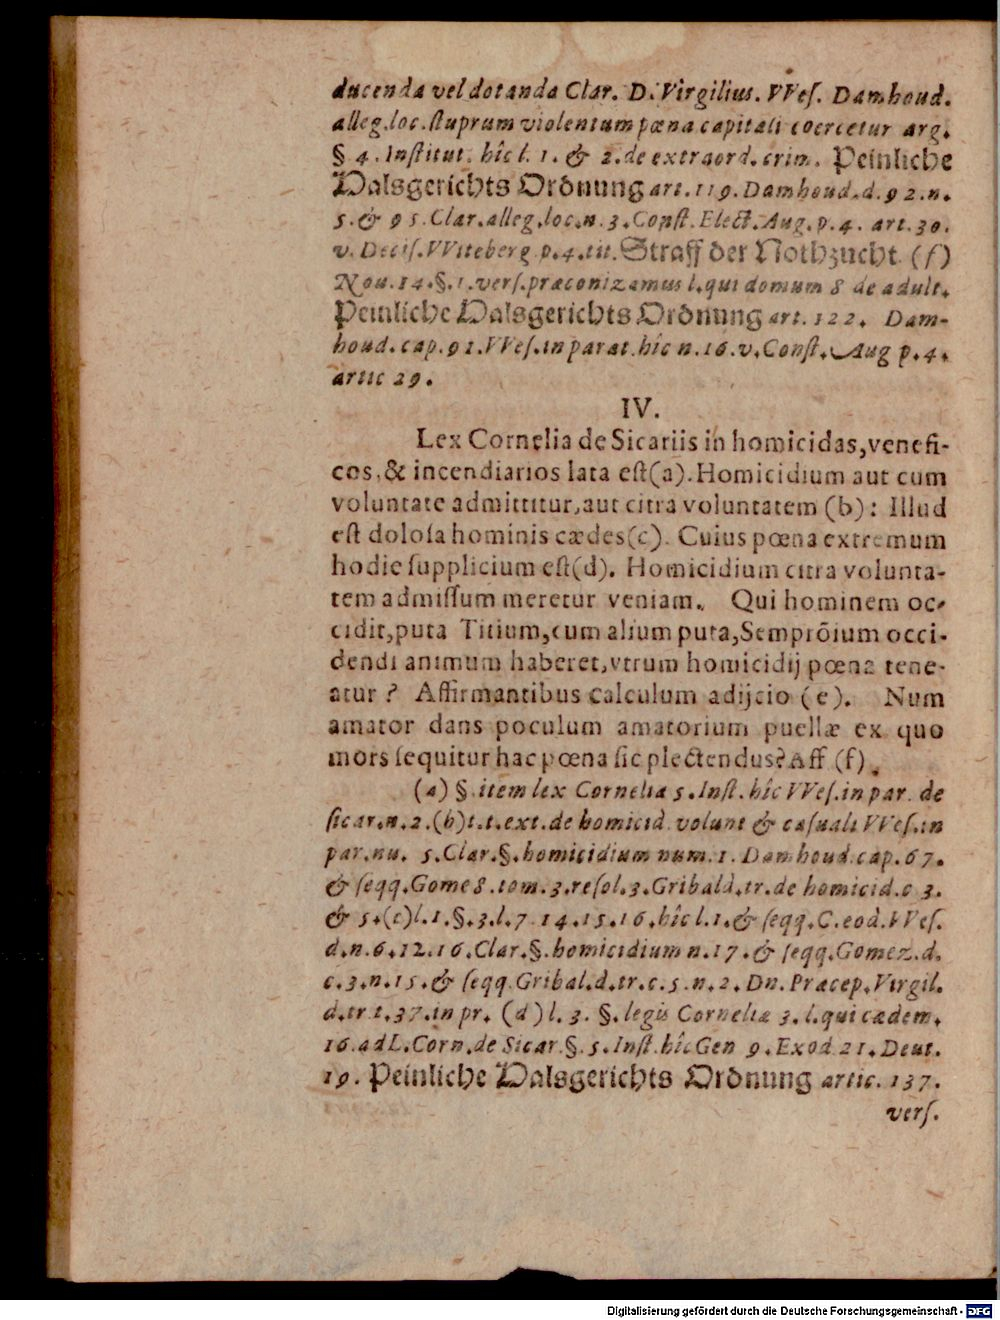 ducenda vel dotanda Clar. D. Virgilius. VVeſ. Damhoud.
alleg.loc.ſtuprum violentum pœna capitali coercetur arg.
§ 4. Inſtitut. hîc l. 1. & 2. de extraord. crim. Peinliche
Halsgerichts Ordnung art. 119. Damhoud. d. 92. n.
5. & 95. Clar. alleg. loc. n. 3. Conſt. Elect. Aug. p. 4. art. 30.
v. Deciſ. VViteberg p. 4. tit. Straff der Nothzucht (f)
Nou. 14. §. 1. verſ. præconizamus l. qui domum 8 de adult.
Peinliche Halsgerichts Ordnung art. 122. Dam-
houd. cap. 91. VVeſ. in parat. hîc n. 16. v. Conſt. Aug p. 4.
artic 29.
IV.
Lex Cornelia de Sicariis in homicidas, venefi-
cos, & incendiarios lata eſt (a). Homicidium aut cum
voluntate admittitur, aut citra voluntatem (b): Illud
eſt doloſa hominis cædes (c). Cuius pœna extremum
hodie ſupplicium eſt (d). Homicidium citra volunta-
tem admiſſum meretur veniam. Qui hominem oc-
cidit, puta Titium, cum alium puta, Semprõium occi-
dendi animum haberet, vtrum homicidij pœna tene-
atur? Affirmantibus calculum adijcio (e). Num
amator dans poculum amatorium puellæ ex quo
mors ſequitur hac pœna ſic plectendus? Aff (f).
(a) §. item lex Cornelia 5. Inſt. hîc VVeſ. in par. de
ſicar. n. 2. (b) t. t. ext. de homicid. volunt & caſuali VVeſ. in
par. nu. 5. Clar. §. homicidium num. 1. Damhoud. cap. 67.
& ſeqq. Gome8. tom. 3. reſol. 3. Gribald. tr. de homicid. c 3.
& 5. (c) l. 1. §. 3. l. 7. 14. 15. 16. hîc l. 1. & ſeqq. C. eod. VVeſ.
d. n. 6. 12. 16. Clar. §. homicidium n. 17. & ſeqq. Gomez. d.
c. 3. n. 15. & ſeqq Gribal. d. tr. c. 5. n. 2. Dn. Præcep. Virgil.
d. tr t. 37. in pr. (d) l. 3. §. legis Corneliæ 3. l. qui cædem.
16. ad L. Corn. de Sicar. §. 5. Inſt. hîc Gen 9. Exod 21. Deut.
19. Peinliche Halsgerichts Ordnung artic. 137.
verſ.
Digitalisierung gefördert durch die Deutsche Forschungsgemeinschaft - DFG